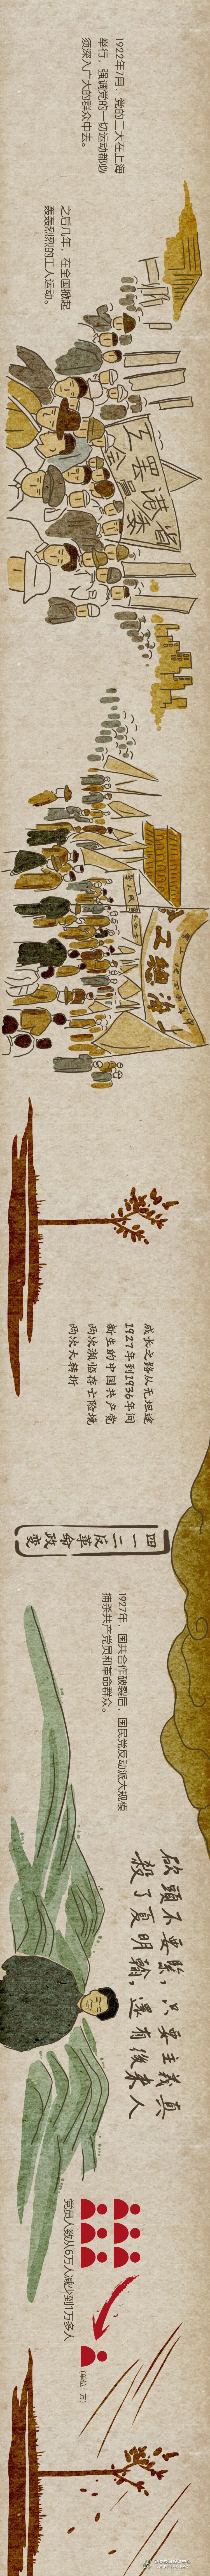 1922年7月，党的二大在上海
举行，强调党的一切运动都必
须深入广大的群众中去。
之后几年，在全国掀起
轰轰烈烈的工人运动。
省港
罢工
上海總工會
成长之路从无坦途
1927年到1936年间
新生的中国共产党
两次濒临存亡险境
两次大转折
四一二
反革命
政变
1927年，国共合作破裂后，国民党反动派大规模
捕杀共产党员和革命群众。
砍頭不要緊，只要主義真
殺了夏明翰，還有後來人
党员人数从6万人减少到1万多人
(单位：万)